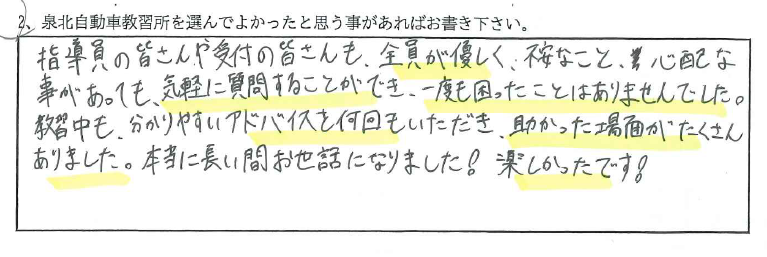 2、泉北自動車教習所を選んでよかったと思う事があればお書き下さい。
指導員の皆さんや受付の皆さんも、全員が優しく、不安なこと、心配な
事があっても、気軽に質問することができ、一度も困ったことはありませんでした。
教習中も、分かりやすいアドバイスを何回もいただき、助かった場面がたくさん
ありました。本当に長い間お世話になりました！楽しかったです！